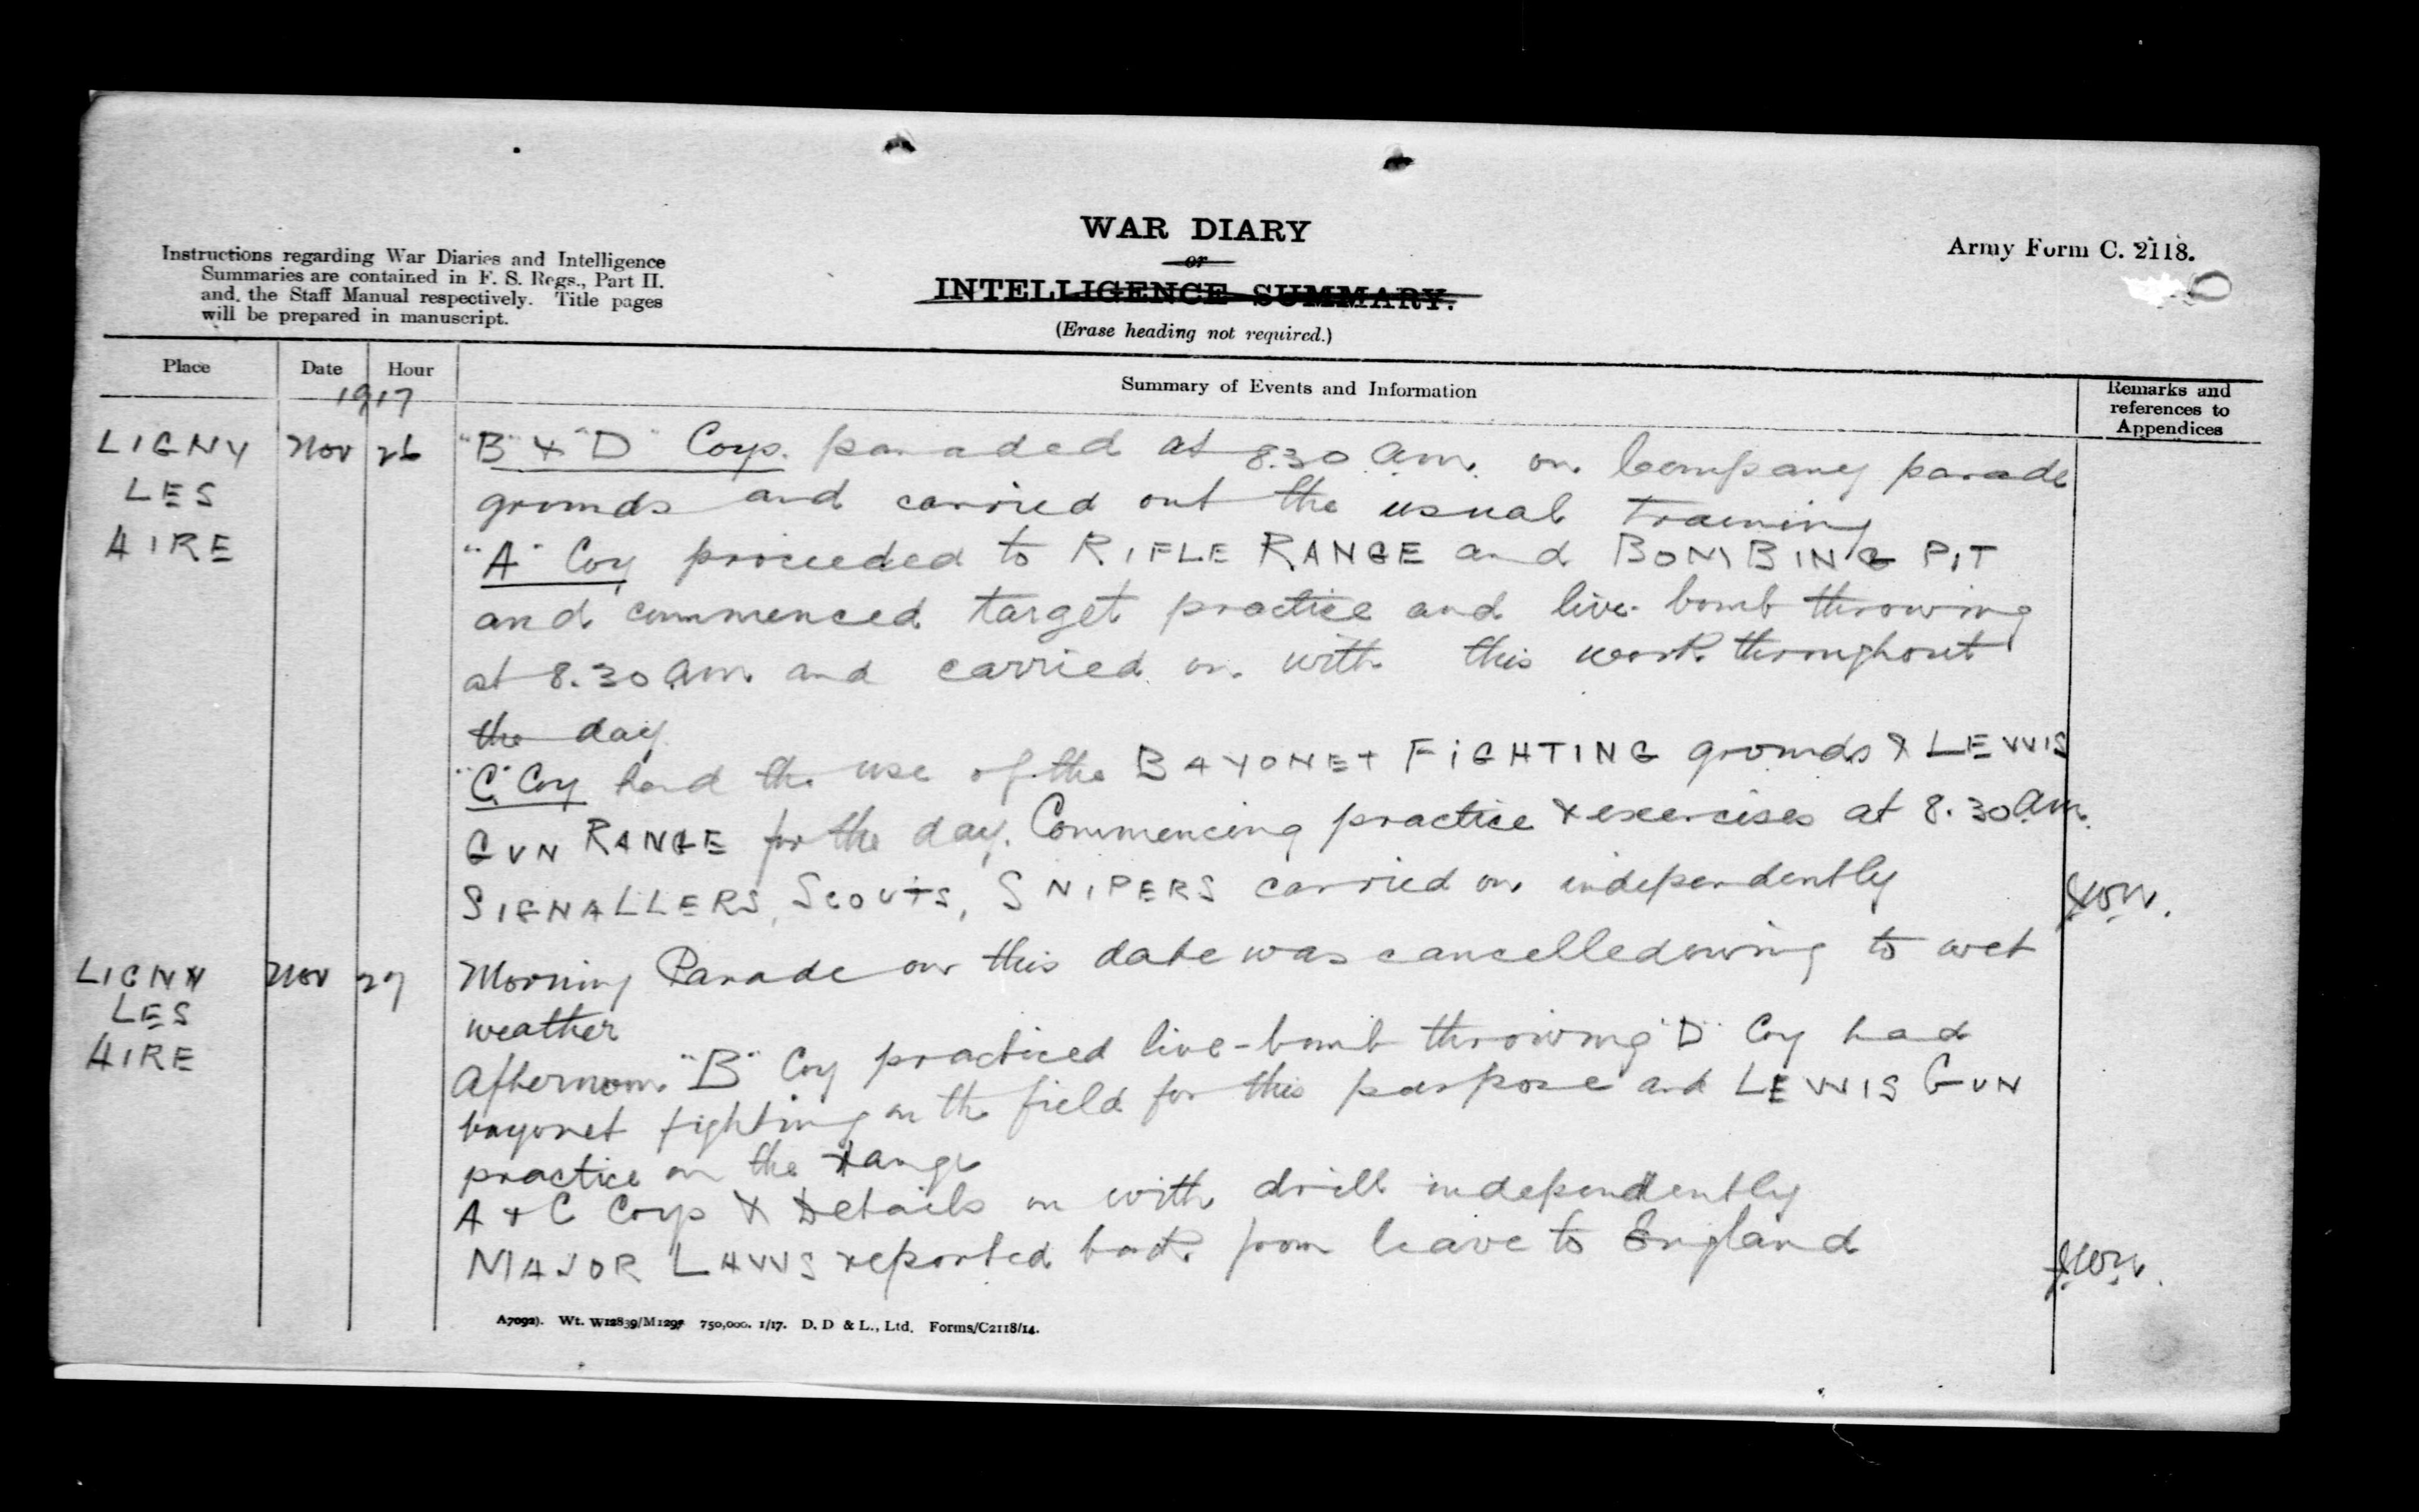 WAR DIARY
or
INTELLIGENCE SUMMARY.
(Erase heading not required.)
Army Form C. 2118.
Instructions regarding War Diaries and Intelligence
Summaries are contained in F. S. Regs., Part II.
and the Staff Manual respectively. Title pages
will be prepared in manuscript.
Place Date Hour Summary of Events and Information Remarks and references to Appendices
1917
LIGNY Nov 26 "B" & "D" Coys. paraded at 8.30 am. on Company parade
LES grounds and carried out the usual training
AIRE "A" Coy proceeded to RIFLE RANGE and BOMBING PIT
and commenced target practice and live bomb throwing
at 8.30 am. and carried on with this work throughout
the day
"C" Coy had the use of the BAYONET FIGHTING grounds & LEWIS
GUN RANGE for the day. Commencing practice & exercises at 8.30 am.
SIGNALLERS, SCOUTS, SNIPERS carried on independently
LIGNY Nov 27 Morning Parade on this date was cancelled owing to wet
LES weather
AIRE Afternoon. "B" Coy practiced live-bomb throwing "D" Coy had
bayonet fighting on the field for this purpose and LEWIS GUN
practice on the range
A & C Coys & Details on with drill independently
MAJOR LAWS reported back from leave to England
A7092). Wt. W12839/M1297 750,000. 1/17. D. D & L., Ltd. Forms/C2118/14.